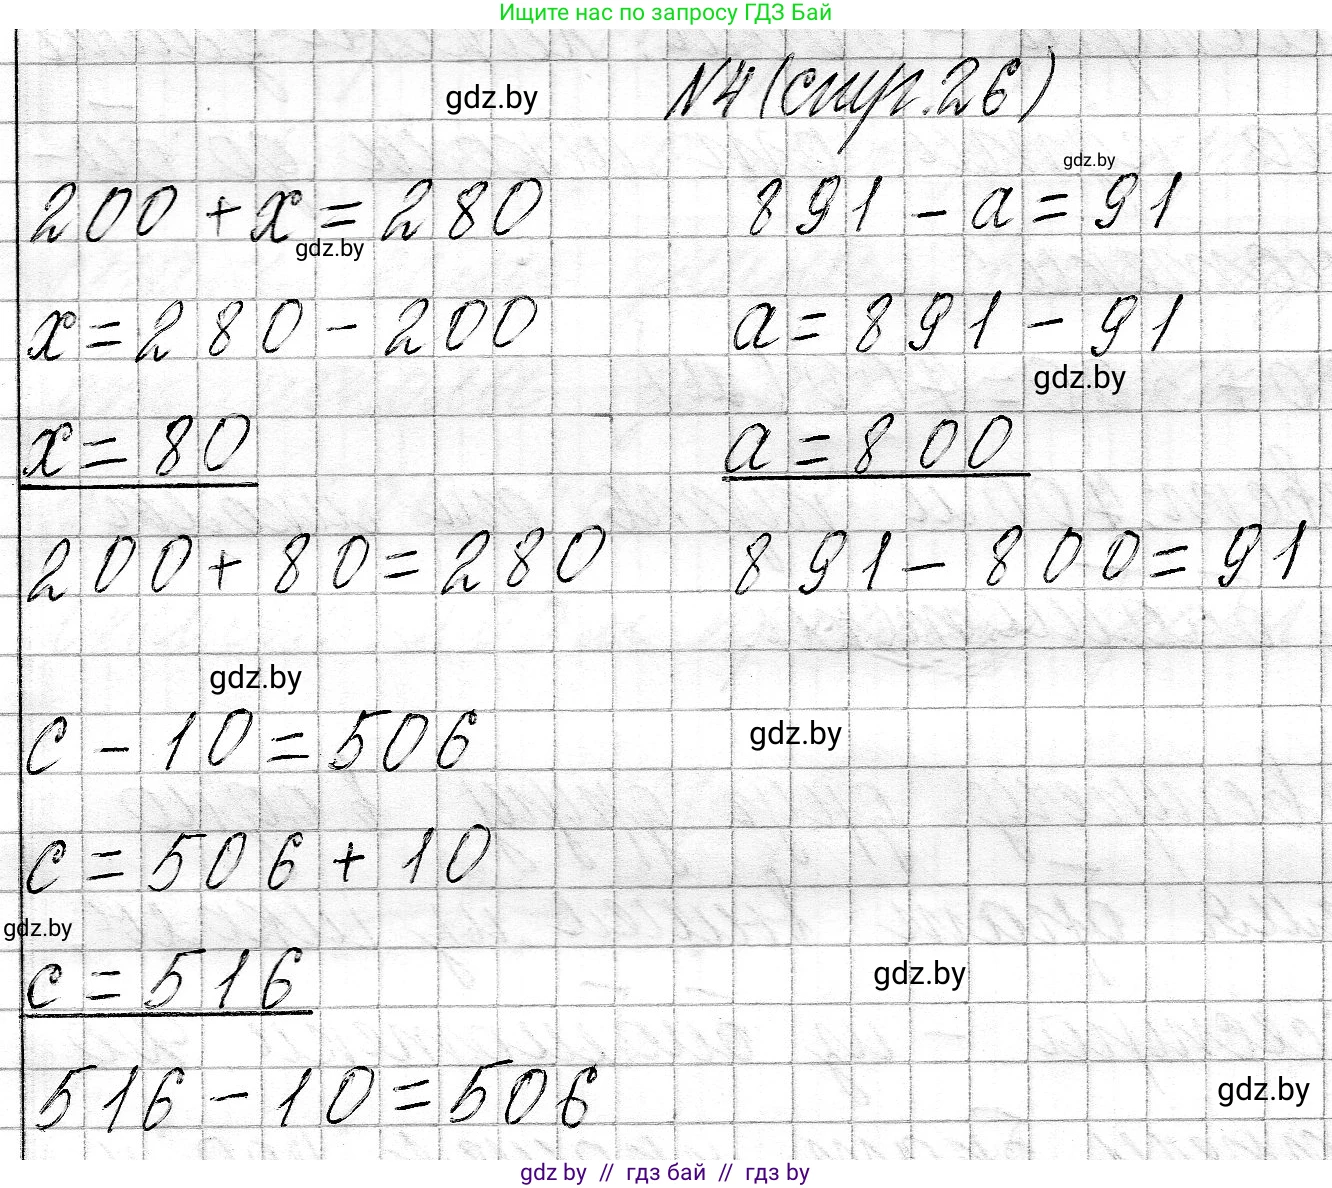 Ищите нас по запросу ГДЗ Бай
gdz.by
N4 (стр. 26)
gdz.by
200 + x = 280
891 - a = 91
gdz.by
x = 280 - 200
a = 891 - 91
gdz.by
x = 80
a = 800
200 + 80 = 280
891 - 800 = 91
gdz.by
c - 10 = 506
gdz.by
c = 506 + 10
gdz.by
c = 516
gdz.by
516 - 10 = 506
gdz.by
gdz by // гдз бай // гдз by